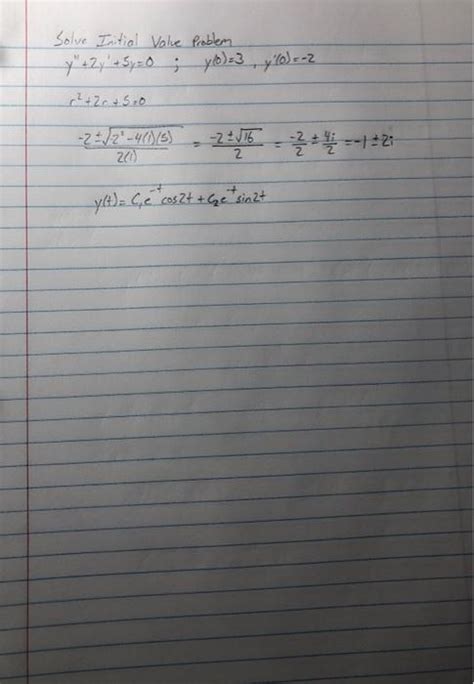 Solve Initial Value Problem
y"+2y'+5y=0 ; y(0)=3 , y'(0)=-2
r²+2r+5=0
(-2±√(2²-4(1)(5)))/2(1) = (-2±√16)/2 = -2/2 ± 4i/2 = -1 ± 2i
y(t)= C₁e^-t cos2t + C₂e^-t sin2t